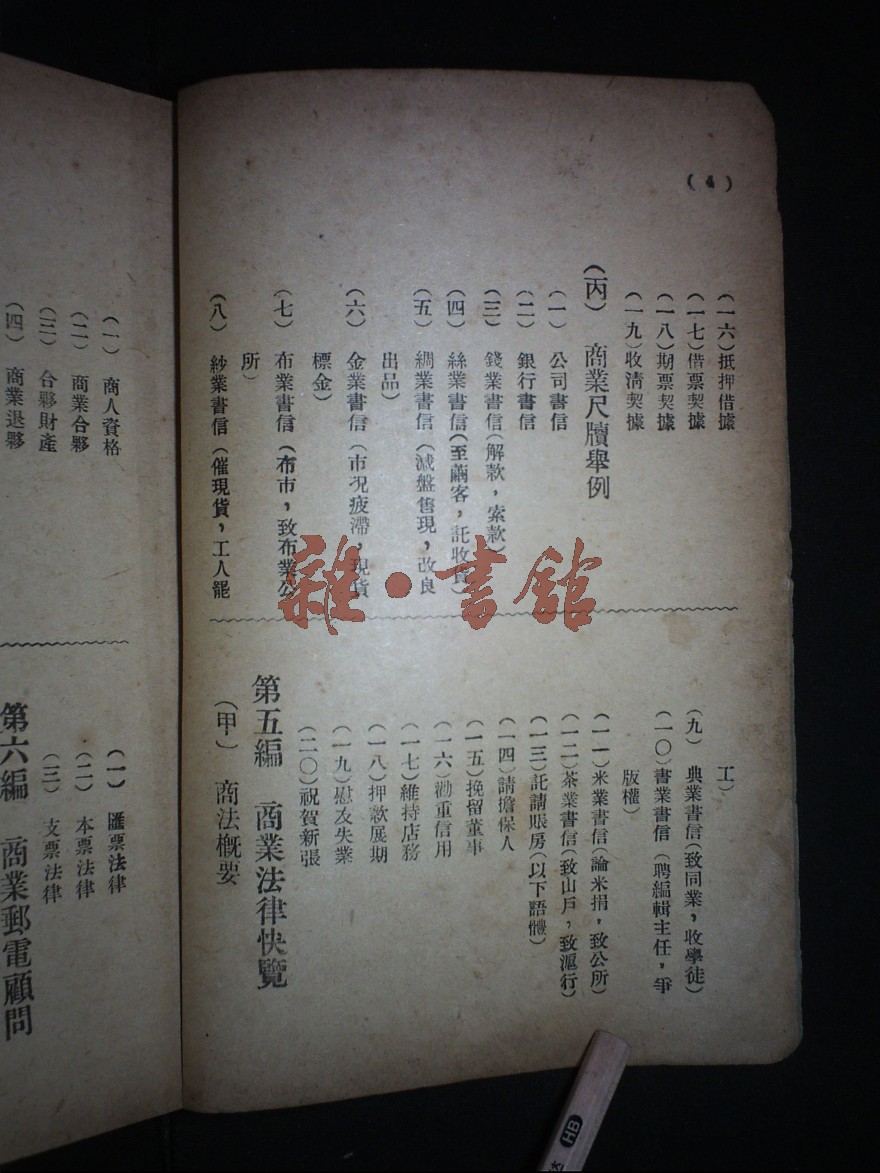 (4)
(一六)抵押借據
(一七)借票契據
(一八)期票契據
(一九)收清契據
(丙) 商業尺牘舉例
(一) 公司書信
(二) 銀行書信
(三) 錢業書信(解款,索款)
(四) 絲業書信(至繭客,託收貨)
(五) 綢業書信(減盤售現,改良
出品)
(六) 金業書信(市況疲滯,現貨
標金)
(七) 布業書信(布市,致布業公
所)
(八) 紗業書信(催現貨,工人罷
工)
(九) 典業書信(致同業,收學徒)
(一〇)書業書信(聘編輯主任,爭
版權)
(一一)米業書信(論米捐,致公所)
(一二)茶業書信(致山戶,致滬行)
(一三)託請賬房(以下語體)
(一四)請擔保人
(一五)挽留董事
(一六)勸重信用
(一七)維持店務
(一八)押款展期
(一九)慰友失業
(二〇)祝賀新張
第五編 商業法律快覽
(甲) 商法概要
(一) 商人資格
(二) 商業合夥
(三) 合夥財產
(四) 商業退夥
(一) 匯票法律
(二) 本票法律
(三) 支票法律
第六編 商業郵電顧問
雜·書館
HB